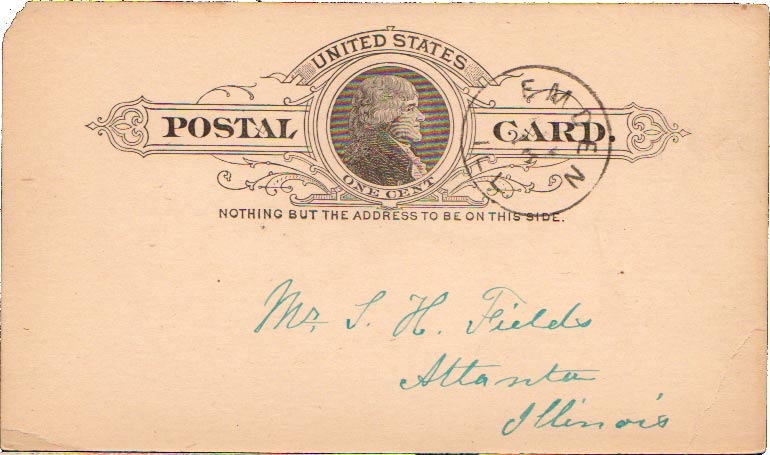 UNITED STATES
POSTAL CARD.
ONE CENT
NOTHING BUT THE ADDRESS TO BE ON THIS SIDE.
EMDEN
ILL.
Mr. S. H. Fields
Atlanta
Illinois